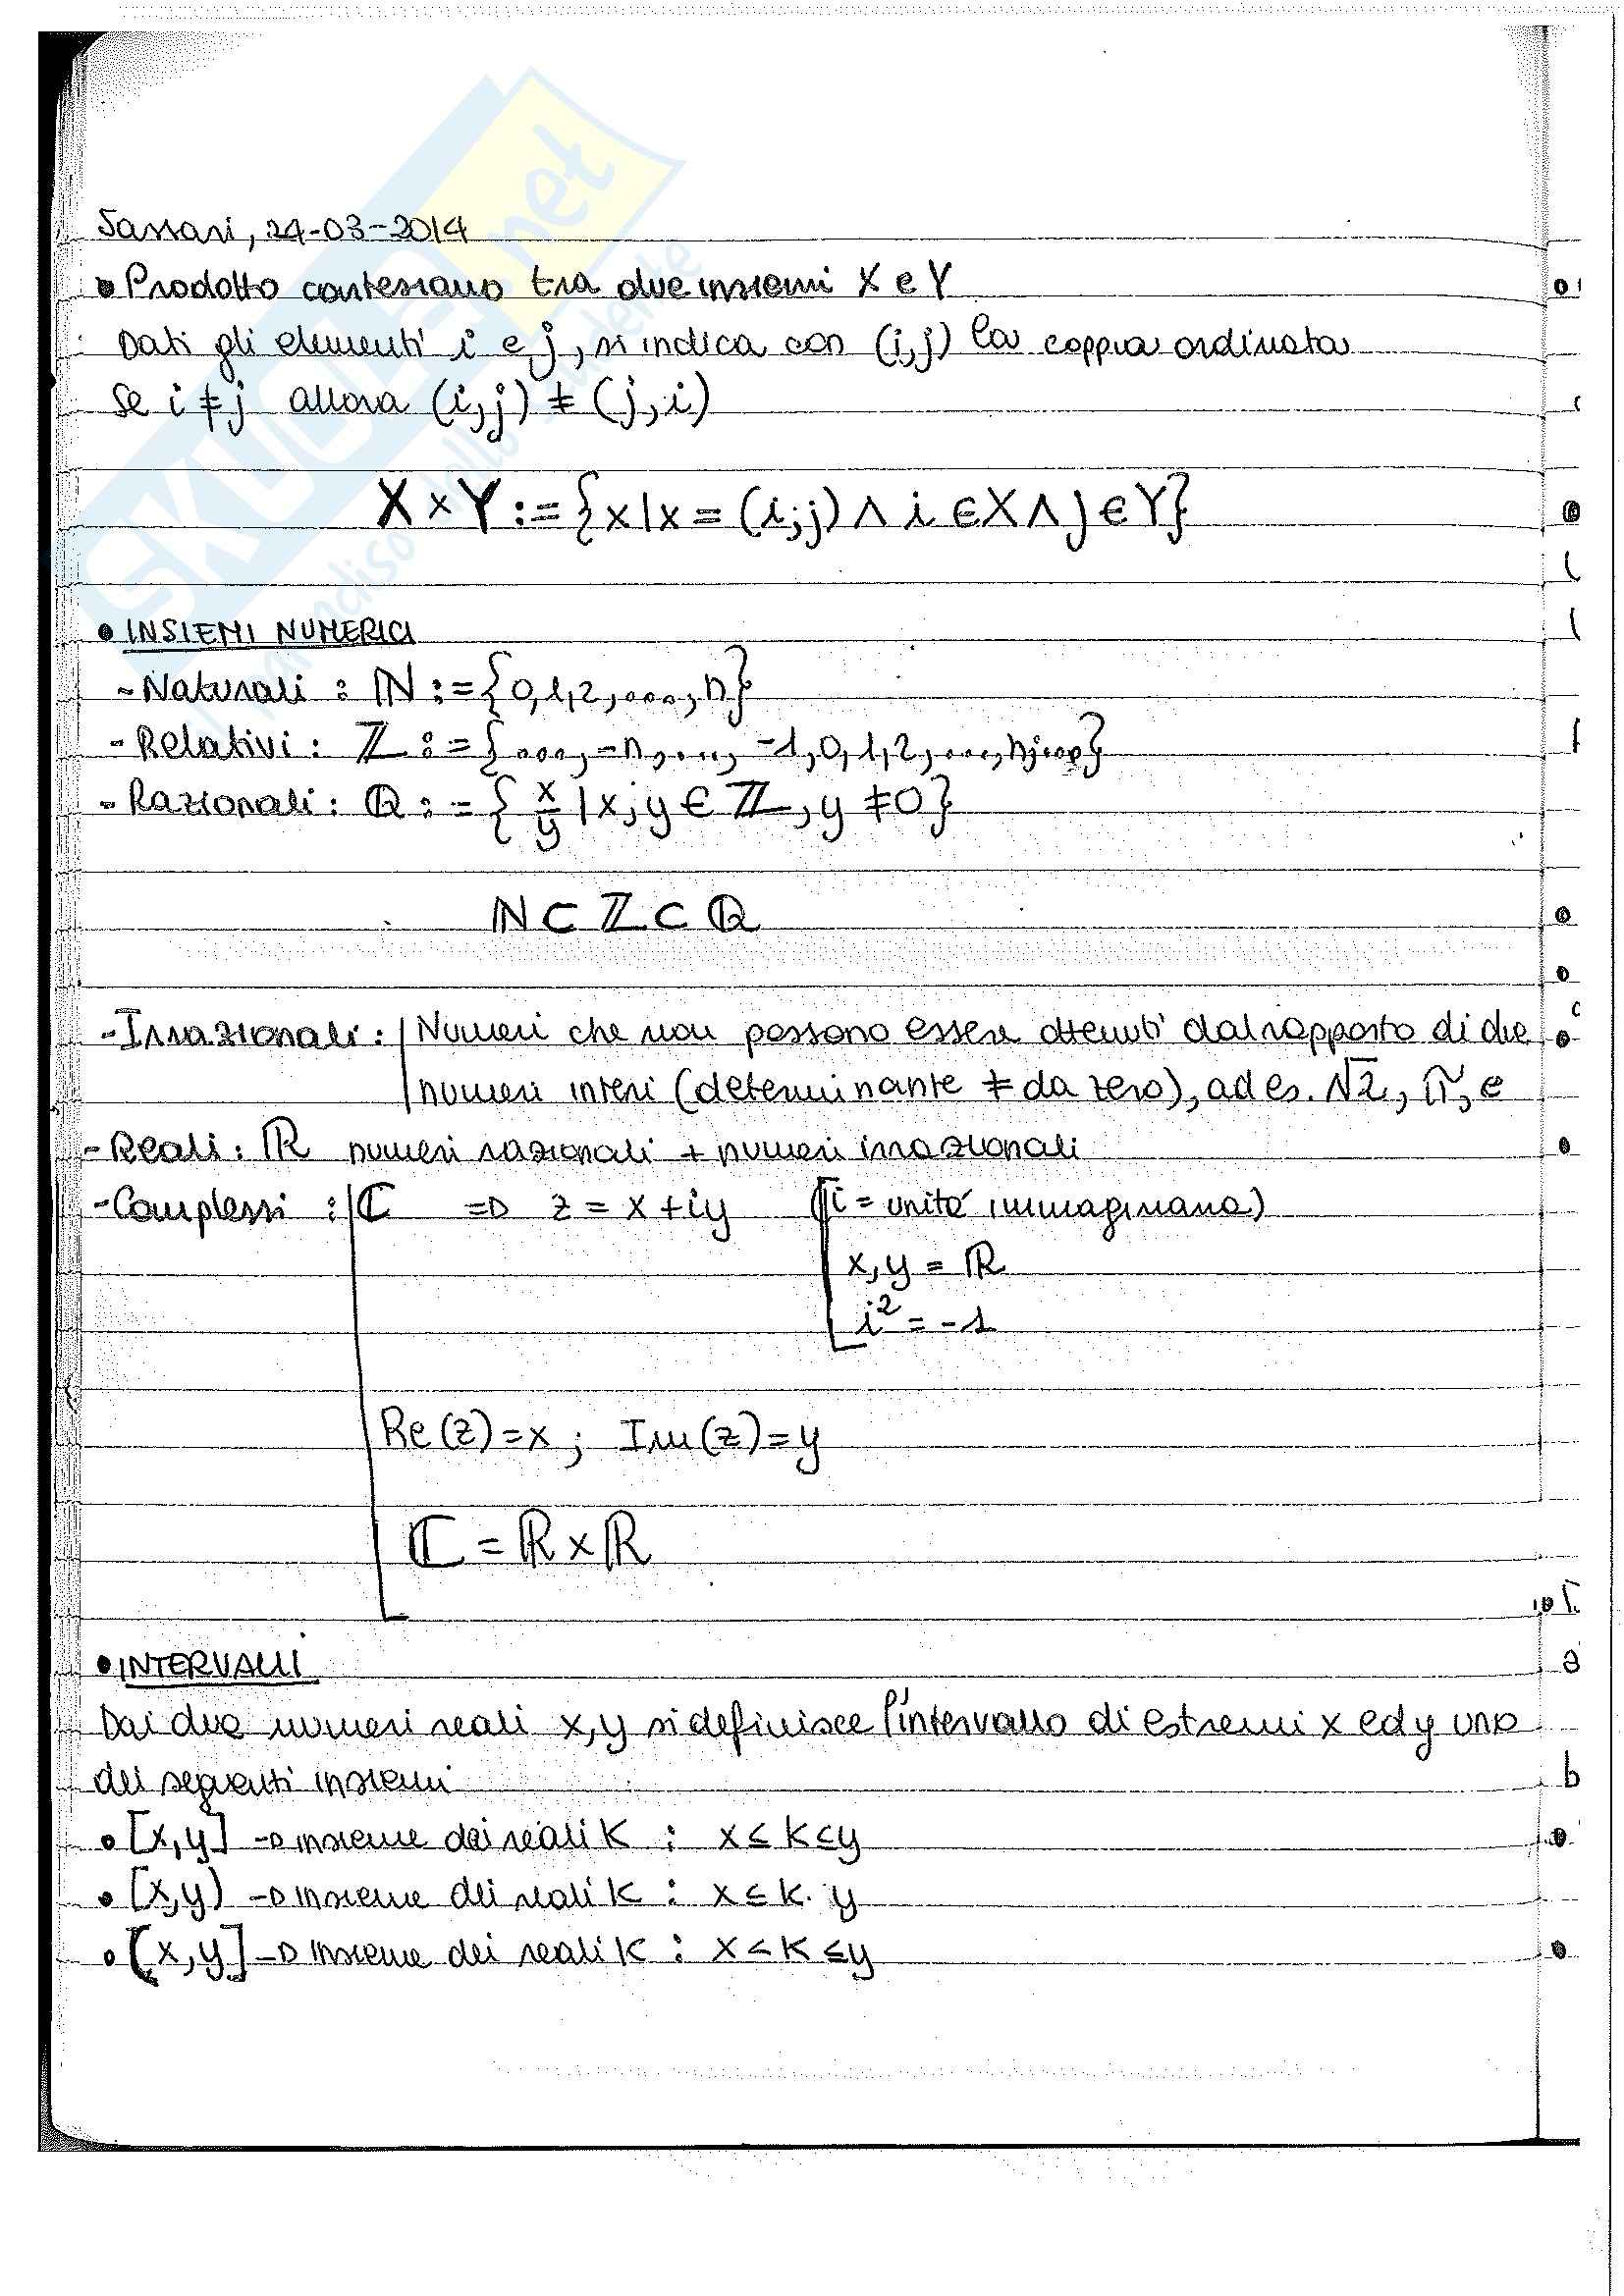 Sassari, 24-03-2014
• Prodotto cartesiano tra due insiemi X e Y
Dati gli elementi i e j, si indica con (i,j) la coppia ordinata
Se i ≠ j allora (i,j) ≠ (j,i)
X × Y := {x | x = (i;j) ∧ i ∈ X ∧ j ∈ Y}
• INSIEMI NUMERICI
- Naturali : ℕ := {0,1,2,....,n}
- Relativi : ℤ := {....,-n,....,-1,0,1,2,....,n;...}
- Razionali : ℚ := { x/y | x,y ∈ ℤ, y ≠ 0}
ℕ ⊂ ℤ ⊂ ℚ
- Irrazionali : Numeri che non possono essere ottenuti dal rapporto di due
numeri interi (determinante ≠ da zero), ad es. √2, π, e
- Reali : ℝ numeri razionali + numeri irrazionali
- Complessi : ℂ => z = x + iy (i = unità immaginaria)
x, y = ℝ
i² = -1
Re(z) = x ; Im(z) = y
ℂ = ℝ × ℝ
• INTERVALLI
Dai due numeri reali x,y si definisce l'intervallo di estremi x ed y uno
dei seguenti insiemi
• [x,y] → insieme dei reali K : x ≤ K ≤ y
• [x,y) → insieme dei reali K : x ≤ K y
• (x,y] → insieme dei reali K : x < K ≤ y